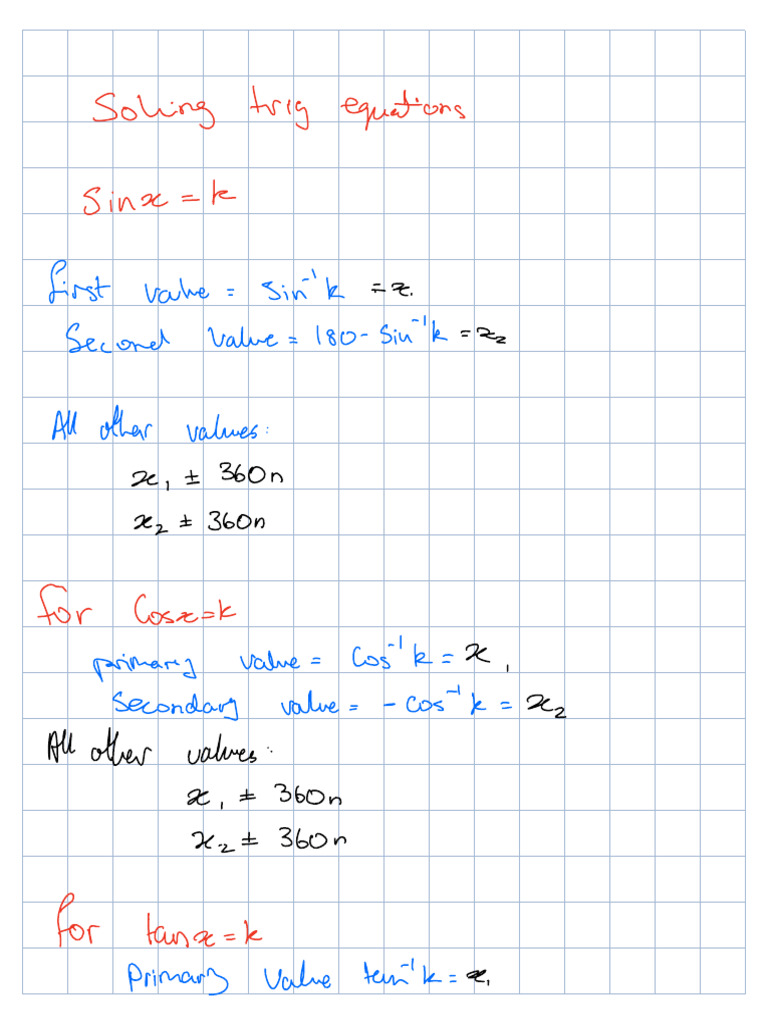 Solving trig equations
sinx = k
first value = sin⁻¹k = x.
Second value = 180 - sin⁻¹k = x₂
All other values:
x₁ ± 360n
x₂ ± 360n
for Cosx=k
primary value = cos⁻¹k = x₁
Secondary value = -cos⁻¹k = x₂
All other values:
x₁ ± 360n
x₂ ± 360n
for tanx=k
Primary value tan⁻¹k = x₁